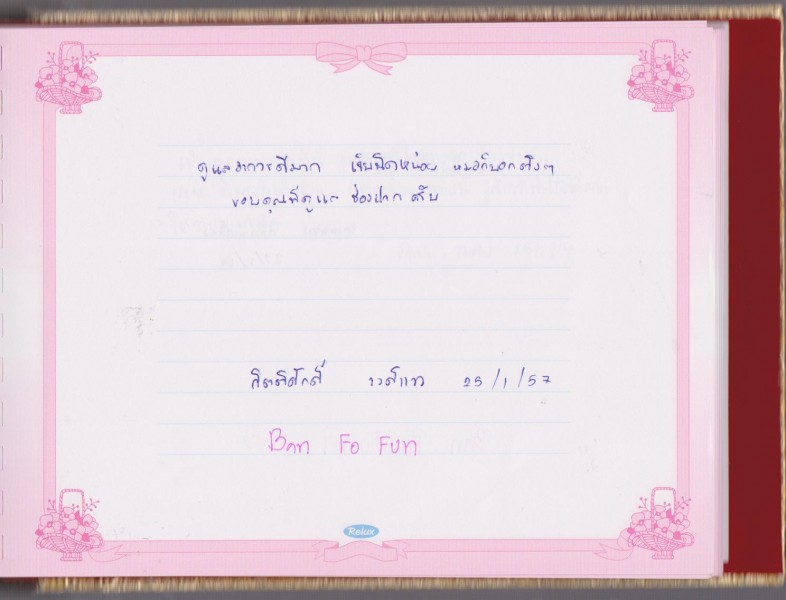 ดูแลอาการดีมาก เจ็บนิดหน่อย หมอก็บอกตรงๆ
ขอบคุณที่ดูแล ช่องปาก ครับ
กิตติศักดิ์ 25/1/57
Ban Fo Fun
Relux